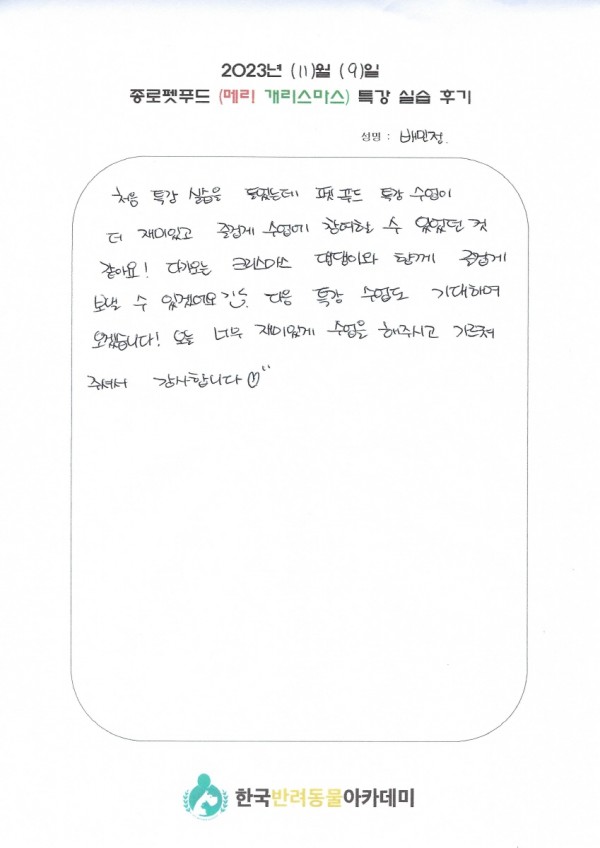 2023년 (11)월 (9)일
종로펫푸드 (메리 개리스마스) 특강 실습 후기
성명 : 배민정.
처음 특강 실습을 들었는데 펫푸드 특강 수업이
더 재미있고 즐겁게 수업에 참여할 수 있었던 것
같아요! 다가오는 크리스마스 댕댕이와 함께 즐겁게
보낼 수 있겠어요 다음 특강 수업도 기대하며
오겠습니다! 오늘 너무 재미있게 수업을 해주시고 가르쳐
주셔서 감사합니다♡"
한국반려동물아카데미